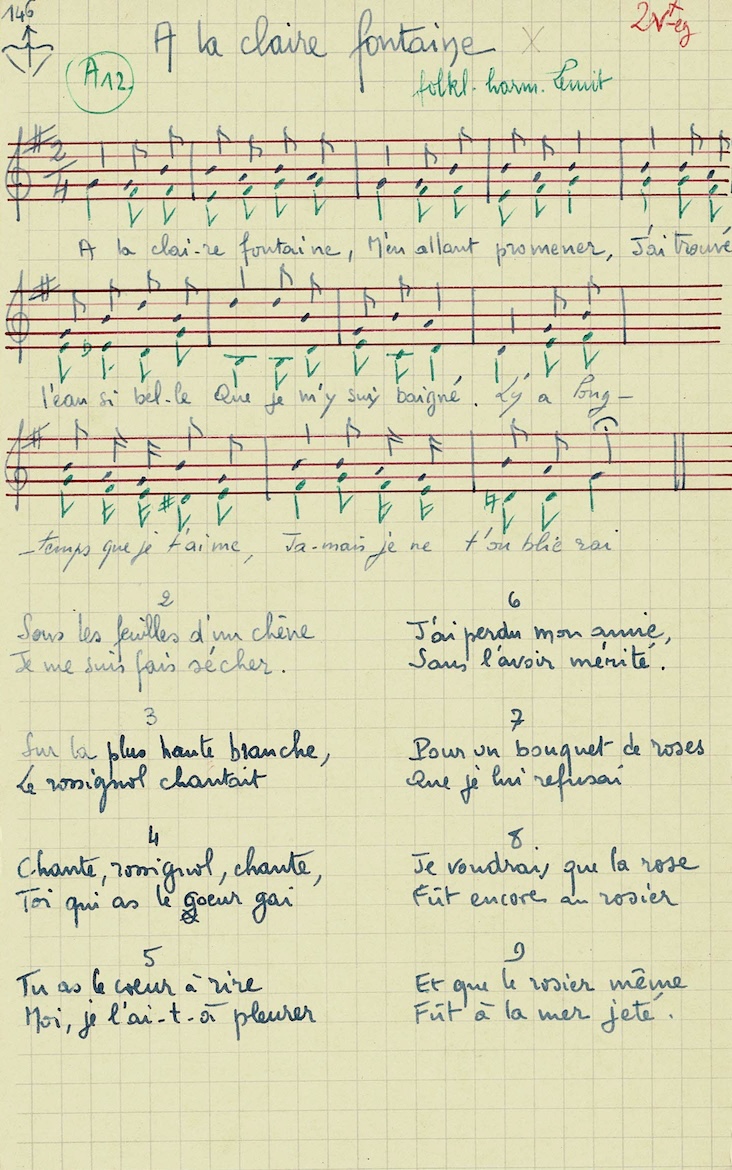 146
A la claire fontaine
A12
folkl. harm.
2
4
A la clai-re fontaine, M'en allant promener, J'ai trouvé
l'eau si bel-le Que je m'y suis baigné. Ly a long-
-temps que je t'aime, Ja-mais je ne t'ou blie rai
2
Sous les feuilles d'un chêne
Je me suis fais sécher.
3
Sur la plus haute branche,
Le rossignol chantait
4
Chante, rossignol, chante,
Toi qui as le coeur gai
5
Tu as le coeur à rire
Moi, je l'ai-t-à pleurer
6
J'ai perdu mon amie,
Sans l'avoir mérité.
7
Pour un bouquet de roses
Que je lui refusai
8
Je voudrais que la rose
Fût encore au rosier
9
Et que le rosier même
Fût à la mer jeté.